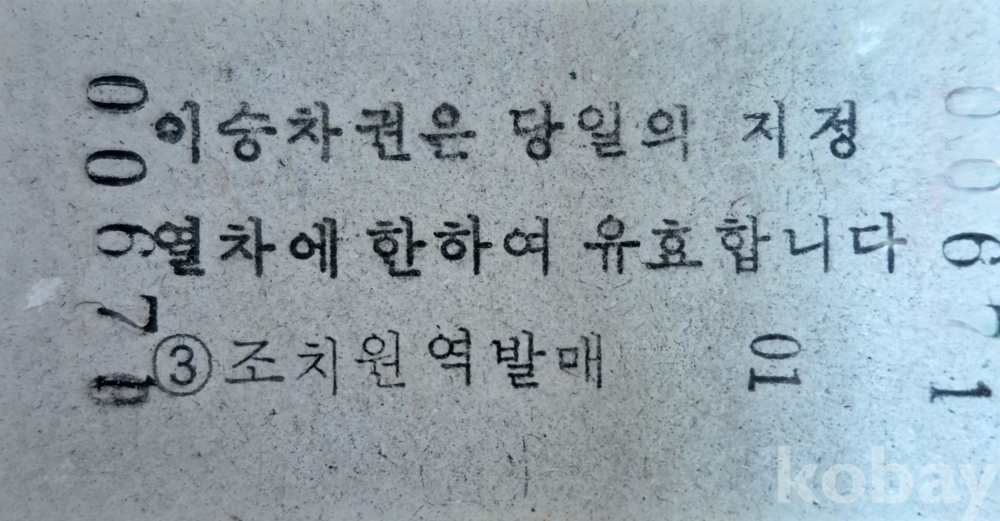 이 승차권은 당일의 지정
열차에 한하여 유효합니다
③ 조치원역발매
01
00671
00671
kobay